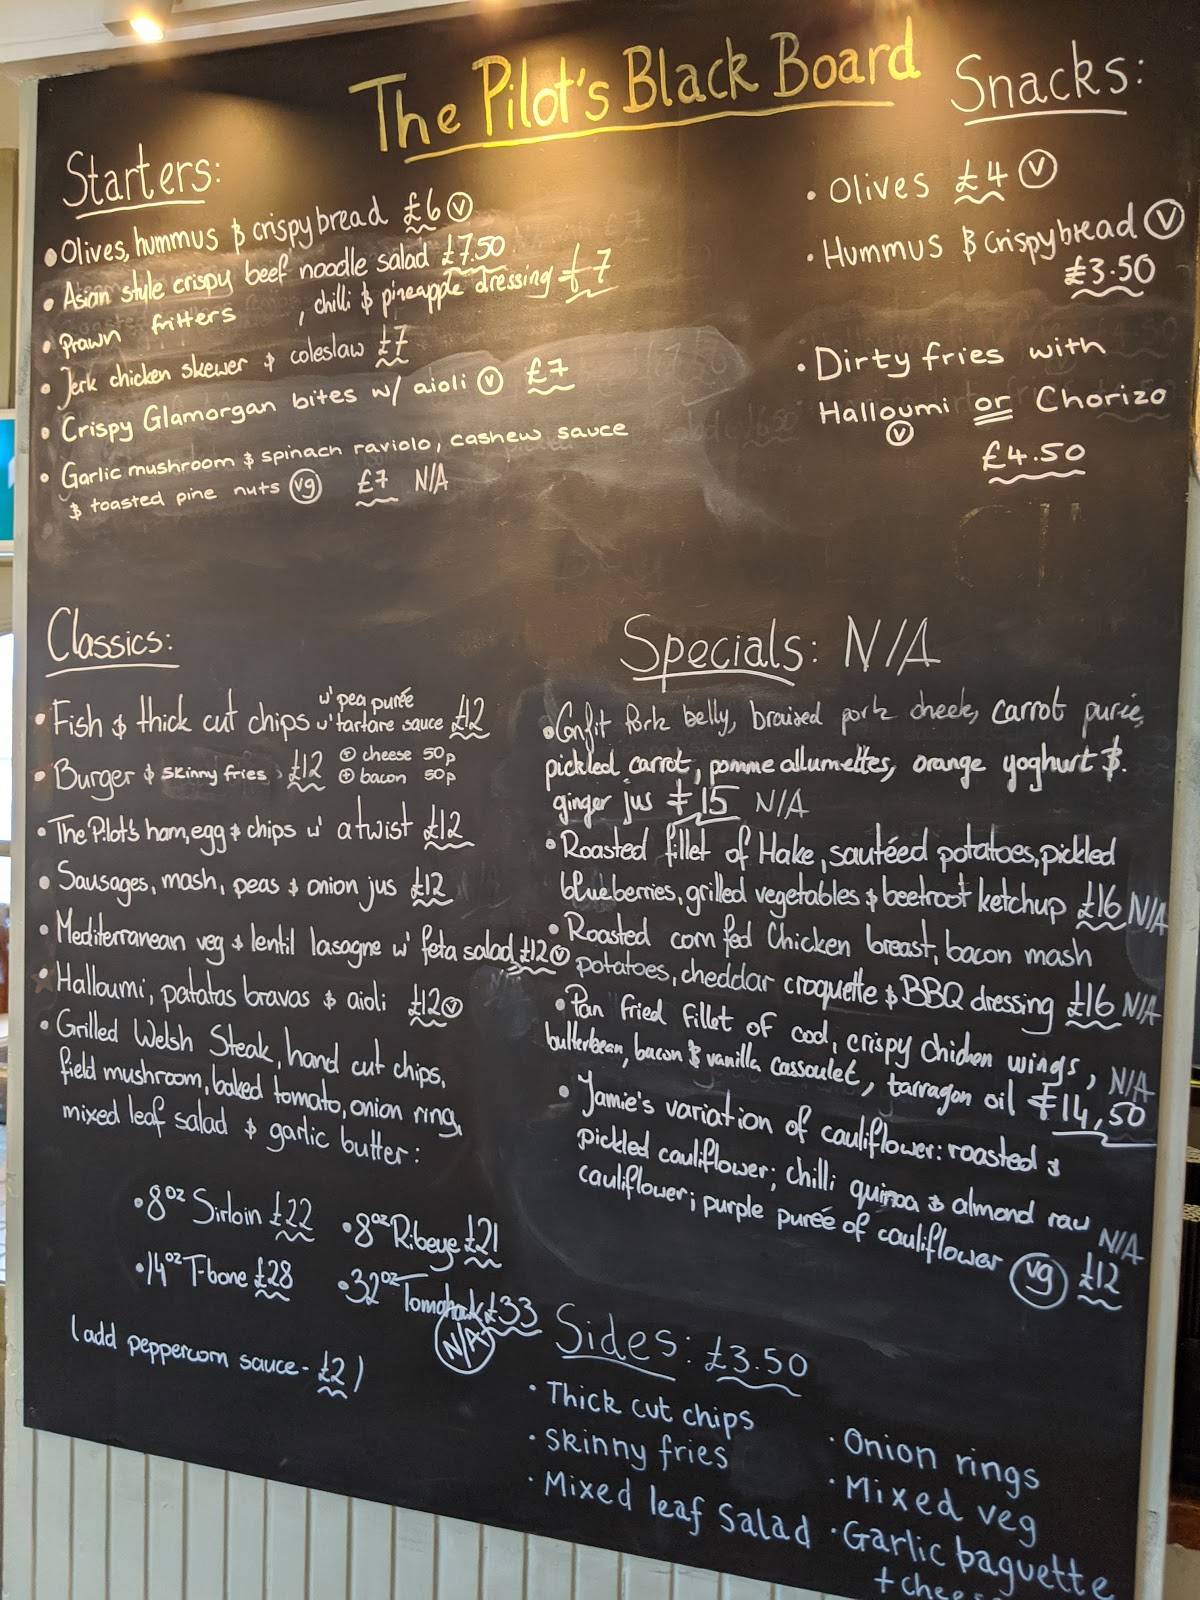 The Pilot's Black Board
Starters:
• Olives, hummus & crispybread £6 Ⓥ
• Asian style crispy beef noodle salad £7.50
• Prawn fritters , chilli & pineapple dressing £7
• Jerk chicken skewer & coleslaw £7
• Crispy Glamorgan bites w/ aioli Ⓥ £7
• Garlic mushroom & spinach raviolo, cashew sauce
& toasted pine nuts (vg) £7 N/A
Snacks:
• Olives £4 Ⓥ
• Hummus & crispybread Ⓥ
£3.50
• Dirty fries with
Halloumi or Chorizo
Ⓥ
£4.50
Classics:
• Fish & thick cut chips w' pea purée w' tartare sauce £12
• Burger & skinny fries, £12 ⊕ cheese 50p
⊕ bacon 50p
• The Pilot's ham, egg & chips w' a twist £12
• Sausages, mash, peas & onion jus £12
• Mediterranean veg & lentil lasagne w' feta salad £12 Ⓥ
Halloumi, patatas bravas & aioli £12 Ⓥ
• Grilled Welsh Steak, hand cut chips,
field mushroom, baked tomato, onion ring,
mixed leaf salad & garlic butter:
• 8oz Sirloin £22 • 8oz Ribeye £21
• 14oz T-bone £28 • 32oz Tomahawk £33
N/A
(add peppercorn sauce - £2)
Specials: N/A
• Confit Pork belly, braised pork cheek, carrot purée,
pickled carrot, pomme allumettes, orange yoghurt &
ginger jus £15 N/A
• Roasted fillet of Hake, sautéed potatoes, pickled
blueberries, grilled vegetables & beetroot ketchup £16 N/A
• Roasted corn fed Chicken breast, bacon mash
potatoes, cheddar croquette & BBQ dressing £16 N/A
• Pan fried fillet of cod, crispy chicken wings,
butterbean, bacon & vanilla cassoulet, tarragon oil £14,50 N/A
• Jamie's variation of cauliflower: roasted &
pickled cauliflower; chilli quinoa & almond raw
cauliflower; purple purée of cauliflower (vg) £12 N/A
Sides: £3.50
• Thick cut chips
• Skinny fries
• Mixed leaf Salad
• Onion rings
• Mixed veg
• Garlic baguette